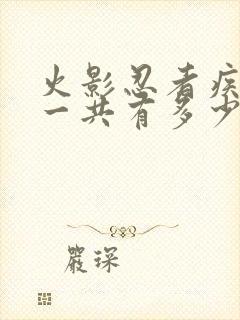 火影忍者疾
一共有多少
严琛